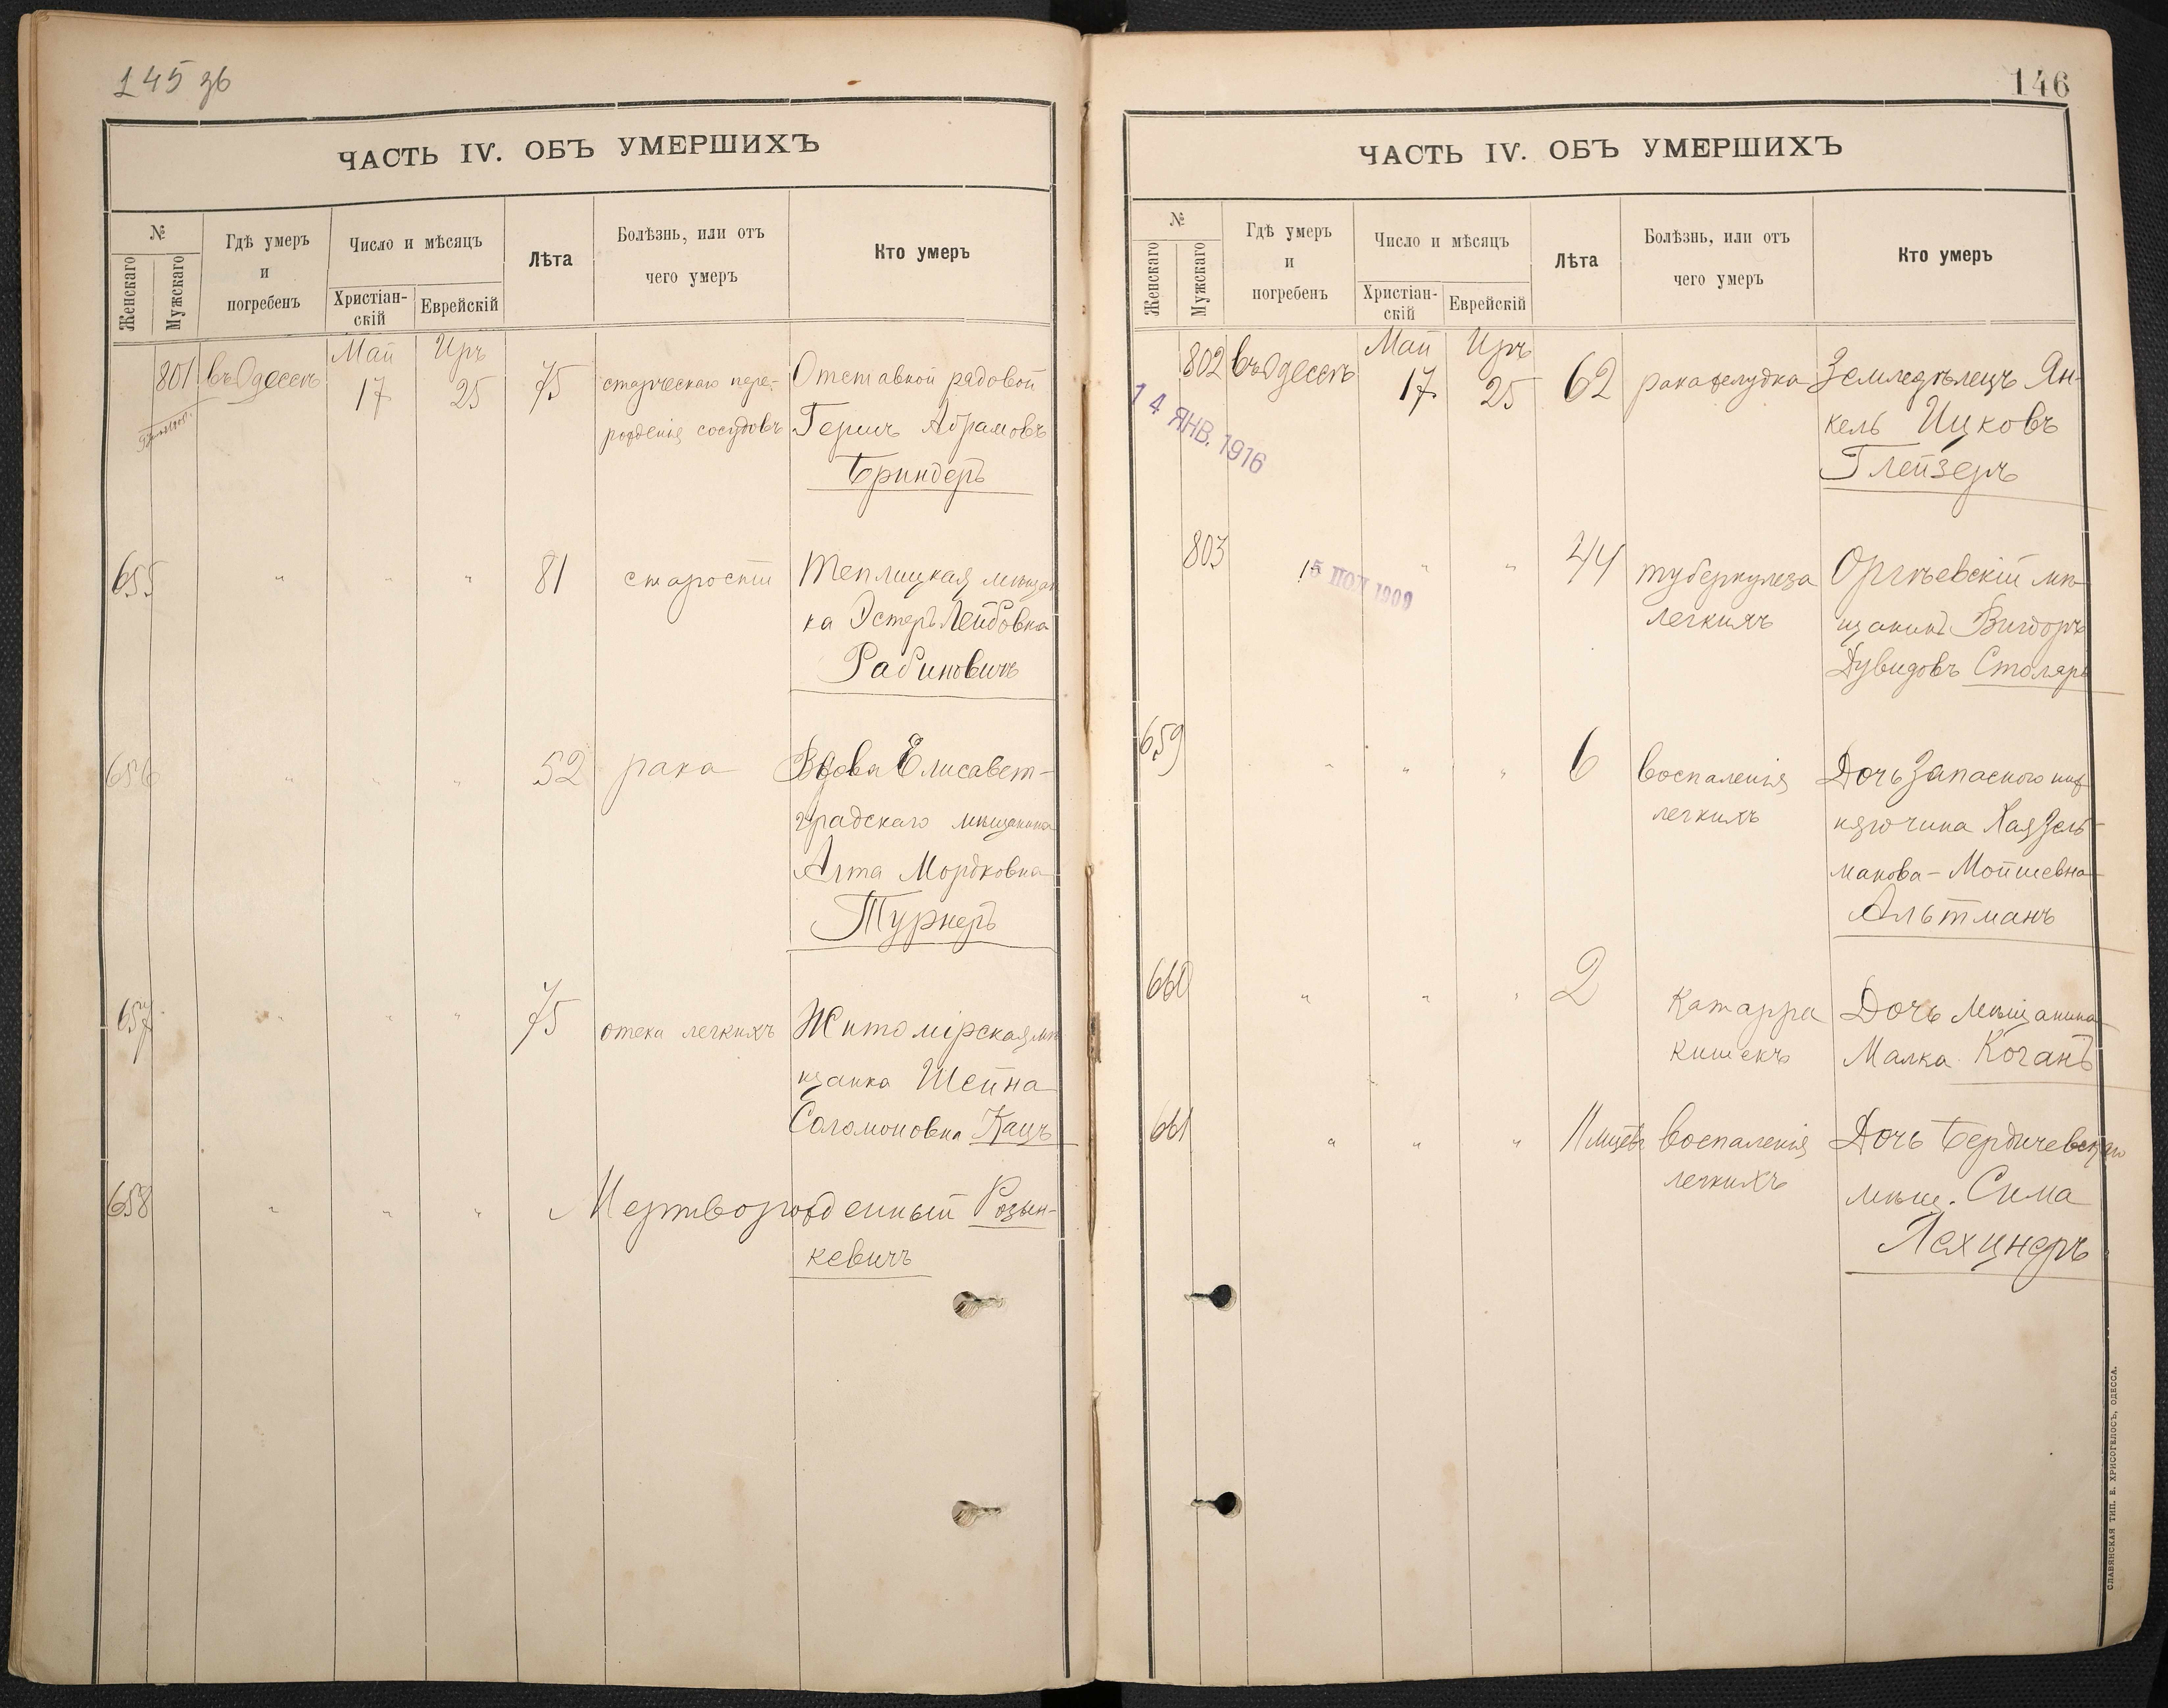 145 зв
ЧАСТЬ IV. ОБЪ УМЕРШИХЪ
№
Женскаго
Мужскаго
Гдѣ умеръ
и
погребенъ
Число и мѣсяцъ
Христіан-
скій
Еврейскій
Лѣта
Болѣзнь, или отъ
чего умеръ
Кто умеръ
Май Иръ
801 въ Одессѣ 17 25 75 старческаго пере- Отставной рядовой
рожденія сосудовъ Гершъ Абрамовъ
Бриндеръ
655 " " " 81 старости Теплицкая мѣщан
ка Эстеръ Лейбовна
Рабиновичъ
656 " " " 52 рака Вдова Елисавет-
градскаго мѣщанина
Алта Мордковна
Турнеръ
657 " " " 75 отека легкихъ Житомірская мѣ
щанка Шейна
Соломоновна Кацъ
658 " " " Мертворожденный Розын-
кевичъ
146
ЧАСТЬ IV. ОБЪ УМЕРШИХЪ
№
Женскаго
Мужскаго
Гдѣ умеръ
и
погребенъ
Число и мѣсяцъ
Христіан-
скій
Еврейскій
Лѣта
Болѣзнь, или отъ
чего умеръ
Кто умеръ
Май Иръ
802 въ Одессѣ 17 25 62 рака желудка Земледѣлецъ Ян-
кель Ицковъ
Глейзеръ
14 ЯНВ. 1916
803 " " 44 туберкулеза Оргѣевскій мѣ-
легкихъ щанинъ Вигдоръ
Дувидовъ Столяръ
15 ІЮЛ 1909
659 " " " 6 воспаленія Дочь запаснаго
легкихъ Хая Зель-
манова-Мойшевна
Альтманъ
660 " " " 2 Катарра Дочь мѣщанина
кишекъ Малка Коганъ
661 " " " 11 мцевъ воспаленія Дочь Бердичевскаго
легкихъ мѣщ. Сима
Лехцнеръ
СЛАВЯНСКАЯ ТИП. Е. ХРИСОГЕЛОСЪ, ОДЕССА.